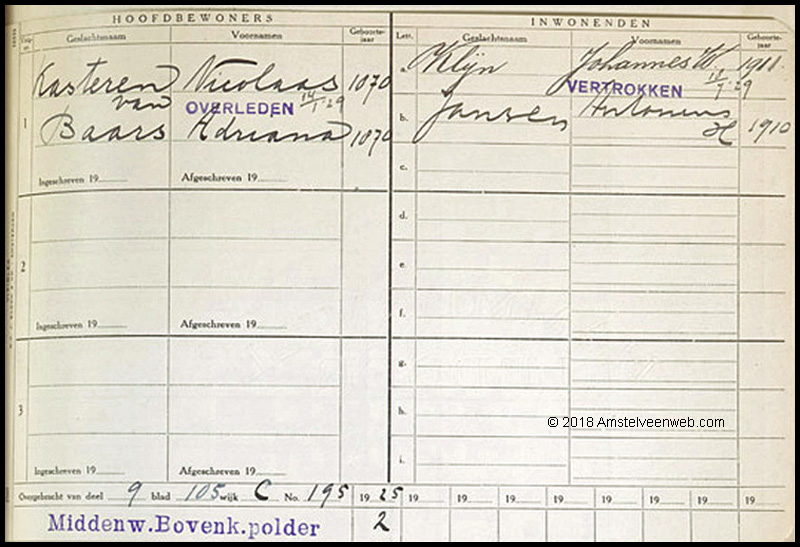 HOOFDBEWONERS
Geslachtsnaam Voornamen Geboorte-jaar
Kasteren Nicolaas 1870
van OVERLEDEN 14/1 29
1 Baars Adriana 1870
Ingeschreven 19 Afgeschreven 19
2
Ingeschreven 19 Afgeschreven 19
3
Ingeschreven 19 Afgeschreven 19
INWONENDEN
Lett. Geslachtsnaam Voornamen Geboorte-jaar
a. Klijn Johannes W. 1911
VERTROKKEN 29
b. Jansen Antonius
H 1910
c.
d.
e.
f.
g.
h.
i.
© 2018 Amstelveenweb.com
Overgebracht van deel 9 blad 105 wijk C No. 195 19 25 19 19 19 19 19 19 19 19
Middenw.Bovenk.polder 2